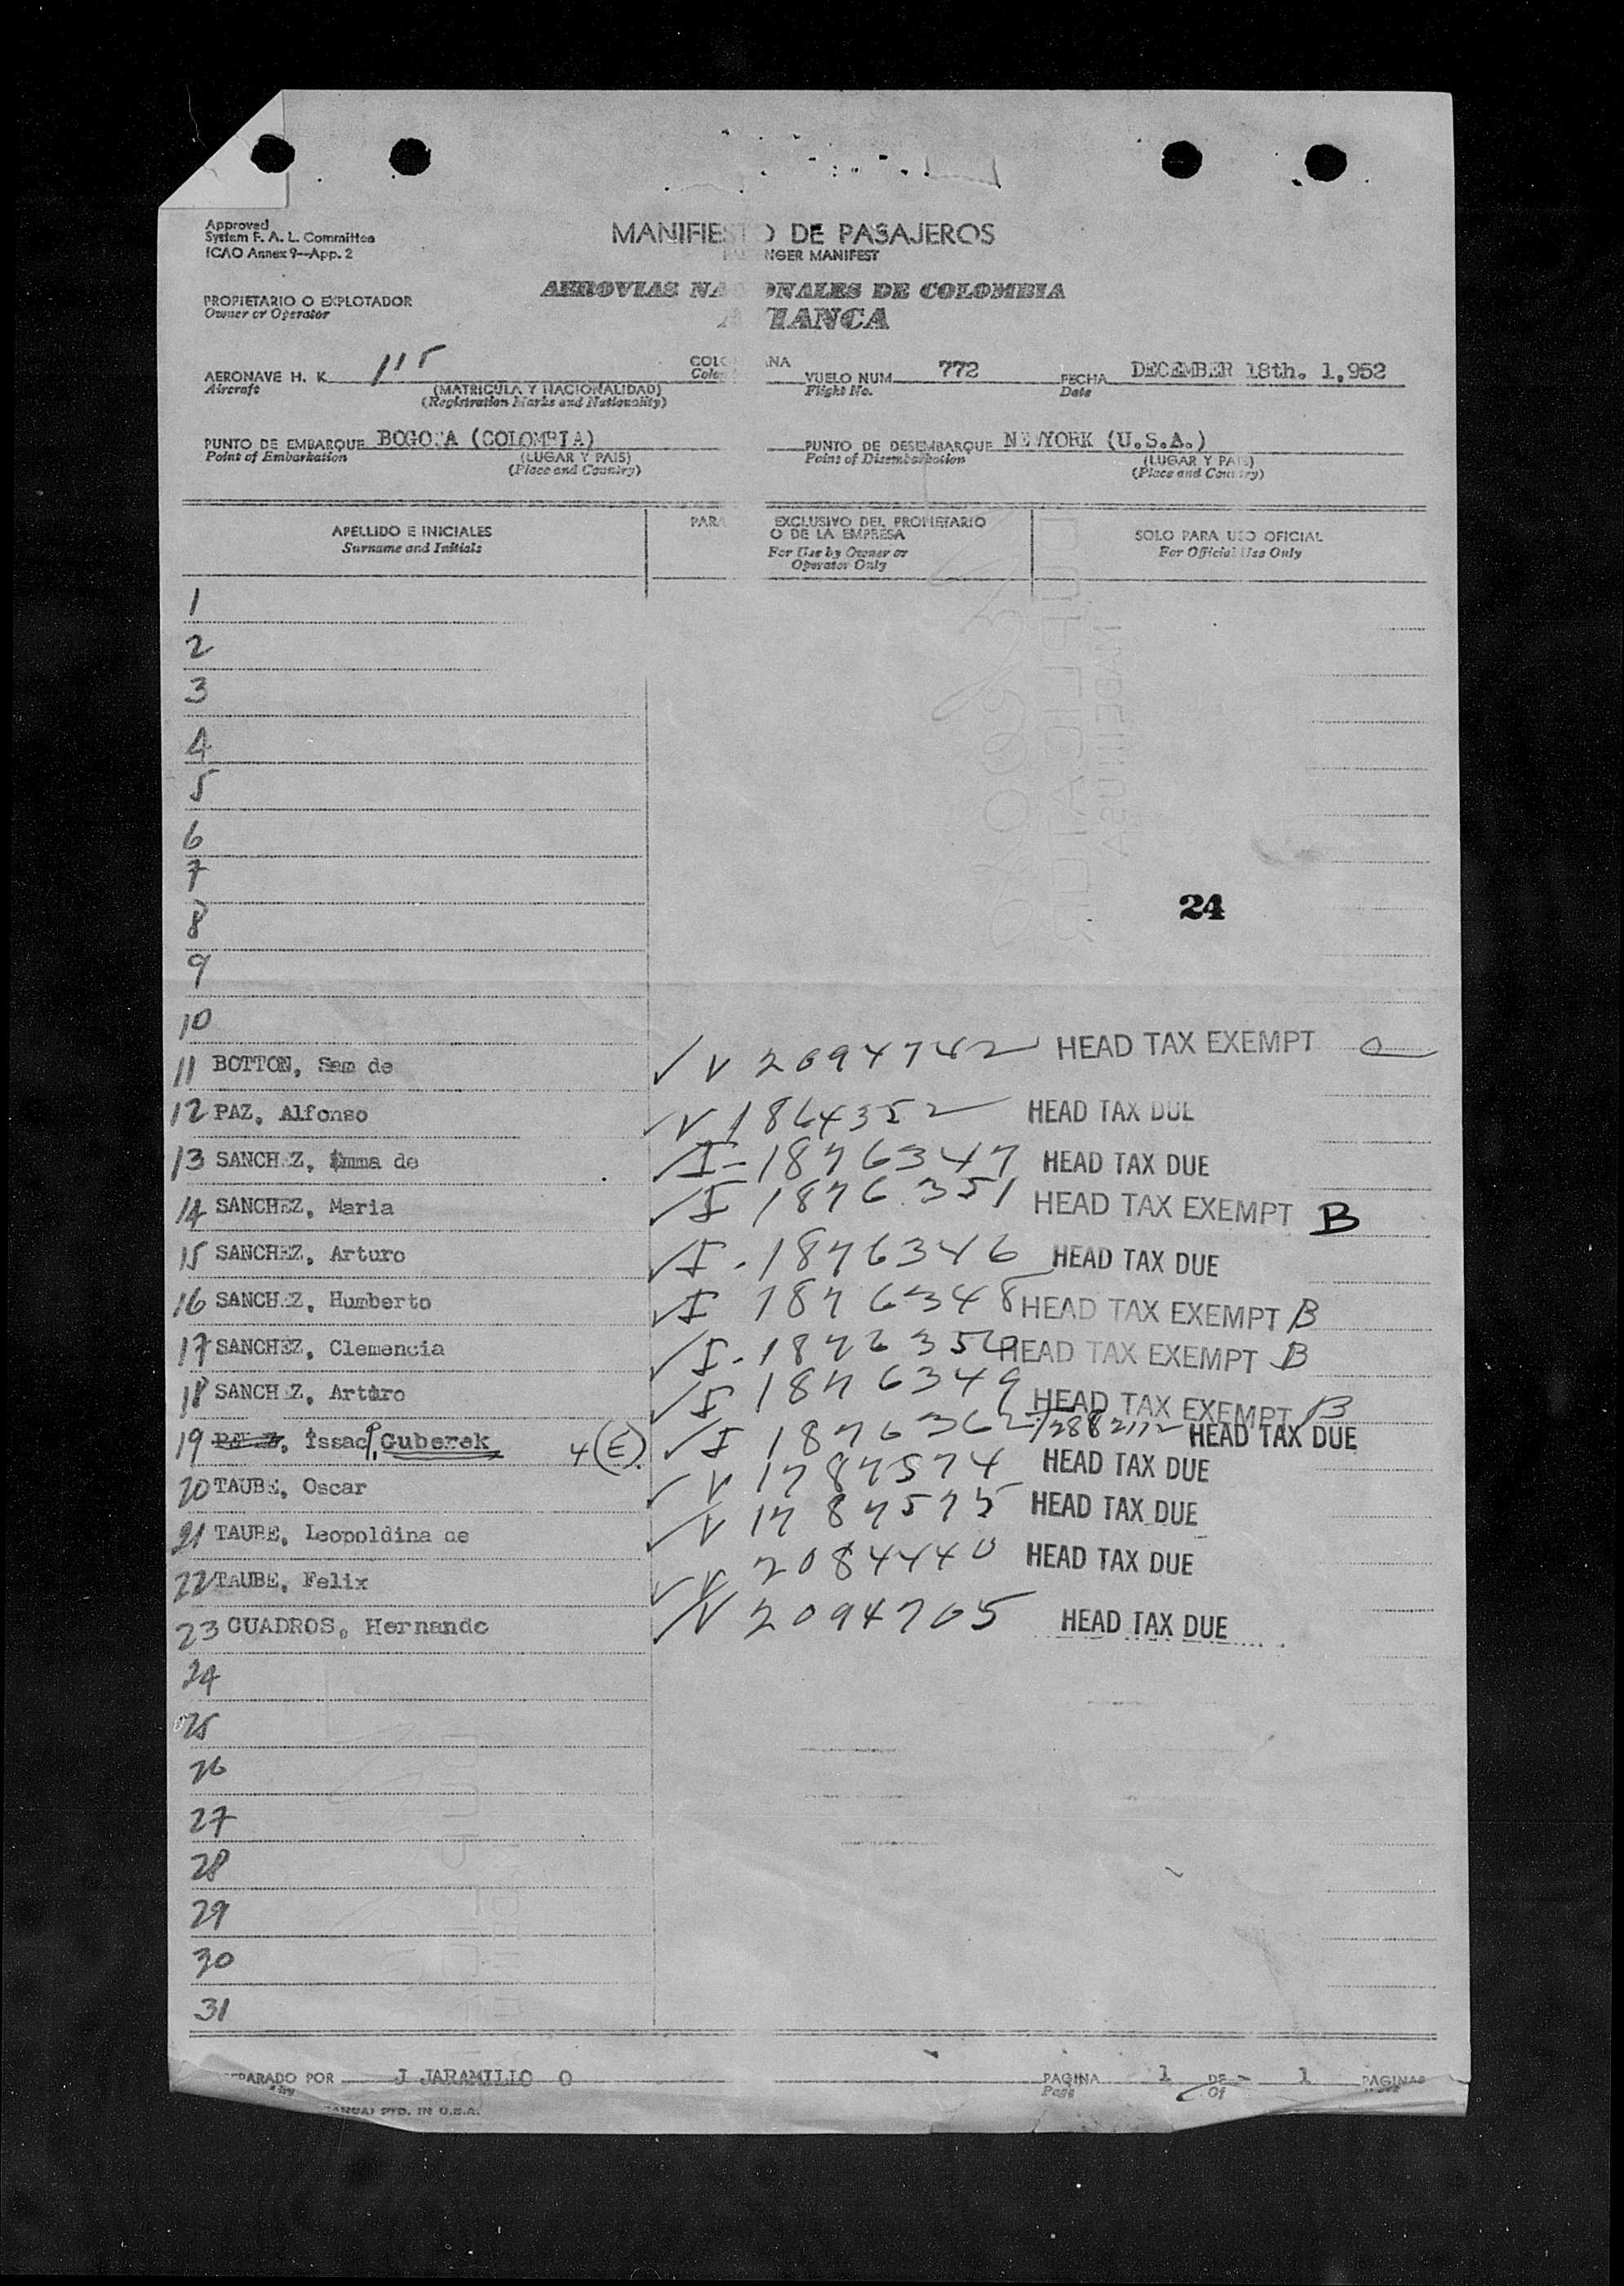 Approved
System F. A. L. Committee
ICAO Annex 9—App. 2
MANIFIESTO DE PASAJEROS
PASSENGER MANIFEST
PROPIETARIO O EXPLOTADOR
Owner or Operator
AEROVIAS NACIONALES DE COLOMBIA
AVIANCA
AERONAVE H. K. 115
Aircraft
(MATRICULA Y NACIONALIDAD)
(Registration Marks and Nationality)
COLOMBIANA
VUELO NUM. 772
Flight No.
FECHA DECEMBER 18th. 1,952
Date
PUNTO DE EMBARQUE BOGOTA (COLOMBIA)
Point of Embarkation
(LUGAR Y PAIS)
(Place and Country)
PUNTO DE DESEMBARQUE NEWYORK (U.S.A.)
Point of Disembarkation
(LUGAR Y PAIS)
(Place and Country)
APELLIDO E INICIALES
Surname and Initials
PARA EXCLUSIVO DEL PROPIETARIO
O DE LA EMPRESA
For Use by Owner or
Operator Only
SOLO PARA USO OFICIAL
For Official Use Only
1
2
3
4
5
6
7
8
24
9
10
11 BOTTON, Sam de V 2094742 HEAD TAX EXEMPT
12 PAZ, Alfonso V 1864352 HEAD TAX DUE
13 SANCHEZ, Emma de I-1876347 HEAD TAX DUE
14 SANCHEZ, Maria I 1876351 HEAD TAX EXEMPT B
15 SANCHEZ, Arturo I-1876346 HEAD TAX DUE
16 SANCHEZ, Humberto I 1876348 HEAD TAX EXEMPT B
17 SANCHEZ, Clemencia I-1876350 HEAD TAX EXEMPT B
18 SANCHEZ, Arturo I 1876349 HEAD TAX EXEMPT B
19 Issac Guberek 4 (E) I 1876362 HEAD TAX DUE
20 TAUBE, Oscar V 1787574 HEAD TAX DUE
21 TAUBE, Leopoldina de V 1787575 HEAD TAX DUE
22 TAUBE, Felix V 2084440 HEAD TAX DUE
23 CUADROS, Hernando V 2094765 HEAD TAX DUE
24
25
26
27
28
29
30
31
PARADO POR J JARAMILLO O
PAGINA 1 DE - 1 PAGINAS
Page Of
PTD. IN U.S.A.